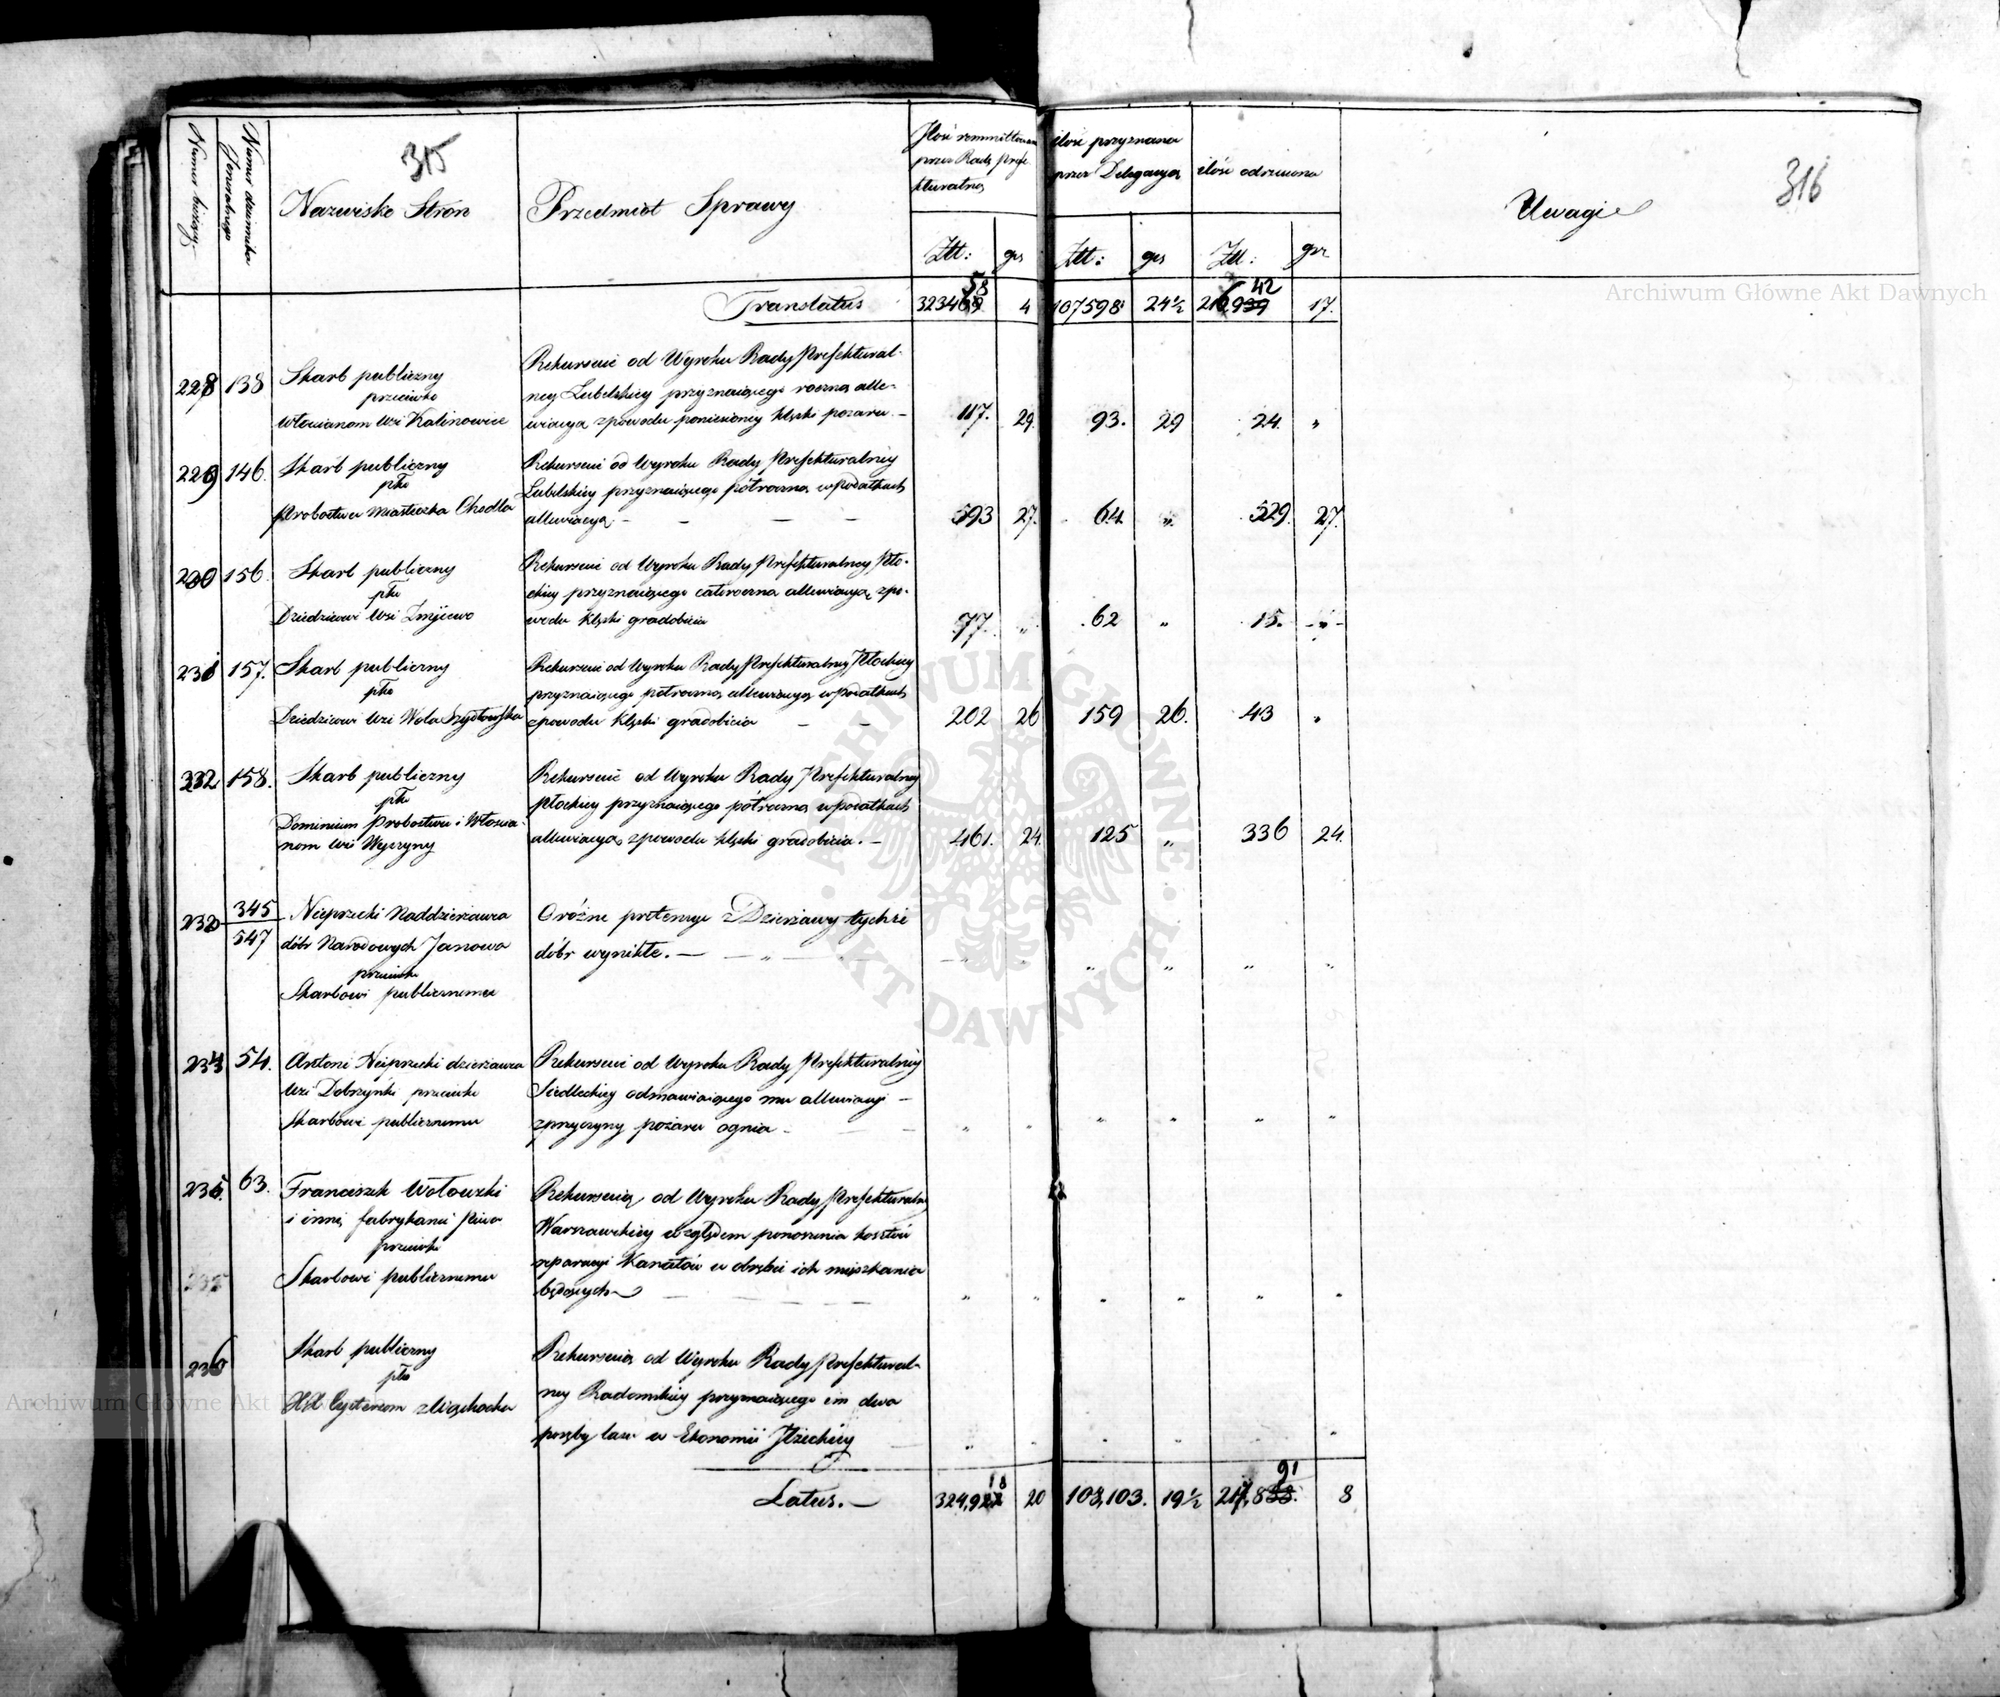 315
316
Numer bieżący
Numer dziennika Jeneralnego
Nazwisko Stron
Przedmiot Sprawy
Ilość remmittowana przez Radę Prefekturalną
ilość przyznana przez Delegacyą
ilość odrzucona
Uwagi
Złł: gr Złł: gr Złł: gr
Translatus 323458 4 107598 24½ 42 17.
228 138 Skarb publiczny
przeciwko
Włościanom Wsi Kalinowice
Rekursuie od Wyroku Rady Prefektural-
ney Lubelskiey przyznaiącego roczną alle-
wiacyą z powodu poniesioney klęski pożaru. – 117. 29. 93. 29 24. „
229 146. Skarb publiczny
pko
Probostwu Miasteczka Chodla
Rekursuie od Wyroku Rady Prefekturalney
Lubelskiey przyznaiącego półroczną w podatkach
allewiacyą – – – – 593 27. 64. „ 529. 27.
230 156. Skarb publiczny
pko
Dziedzicowi Wsi Żmijewo
Rekursuie od Wyroku Rady Prefekturalney Pło-
ckiey przyznaiącego całoroczną allewiacyą z po-
wodu klęski gradobicia 77. „ 62 „ 15. „
231 157. Skarb publiczny
pko
Dziedzicowi Wsi Wola Szydłowska
Rekursuie od Wyroku Rady Prefekturalney Płockiey
przyznaiącego półroczną allewiacyą w podatkach
z powodu klęski gradobicia – – 202 26 159 26. 43 „
232 158. Skarb publiczny
pko
Dominium Probostwu i Włościa-
nom Wsi Wyszyny
Rekursuie od Wyroku Rady Prefekturalney
Płockiey przyznaiącego półroczną w podatkach
allewiacyą z powodu klęski gradobicia. – 461. 24. 125 „ 336 24.
233 345
547
Nieprzecki Naddzierżawca
dóbr Narodowych Janowa
przeciwko
Skarbowi publicznemu
O różne pretensye z Dzierżawy tychże
dóbr wynikłe. – – „ – „ „ „ „ „ „
234 54. Antoni Nieprzecki dzierżawca
Wsi Dobrzynki przeciwko
Skarbowi publicznemu
Rekursuie od Wyroku Rady Prefekturalney
Siedleckiey odmawiaiącego mu allewiacyi –
z przyczyny pożaru ognia – „ „ „ „ „ „
235. 63. Franciszek Wołowski
i inni fabrykanci Piwa
przeciwko
Skarbowi publicznemu
Rekursuią od Wyroku Rady Prefekturalney
Warszawskiey względem ponoszenia kosztów
reparacyi Kanałów w obrębie ich mieszkania
będących – „ „ „ „ „ „
236 Skarb publiczny
pko
XX Cystersom z Wąchocka
Rekursuią od Wyroku Rady Prefektural-
ney Radomskiey przyznaiącego im dwa
poręby lasu w Ekonomii Iłżeckiey „ „ „ „ „ „
Latus. – 324,918 20 108,103. 19½ 91 8
Archiwum Główne Akt Dawnych
Archiwum Główne Akt Dawnych
ARCHIWUM GŁÓWNE · AKT DAWNYCH ·